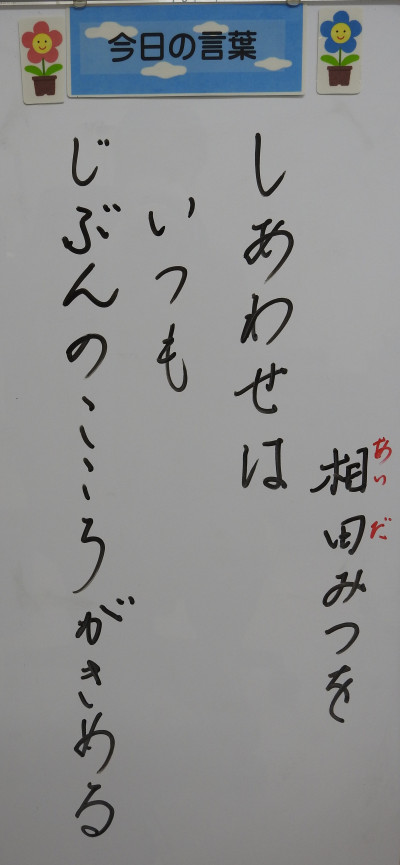 今日の言葉
相田みつを
あいだ
しあわせは
いつも
じぶんのこころがきめる